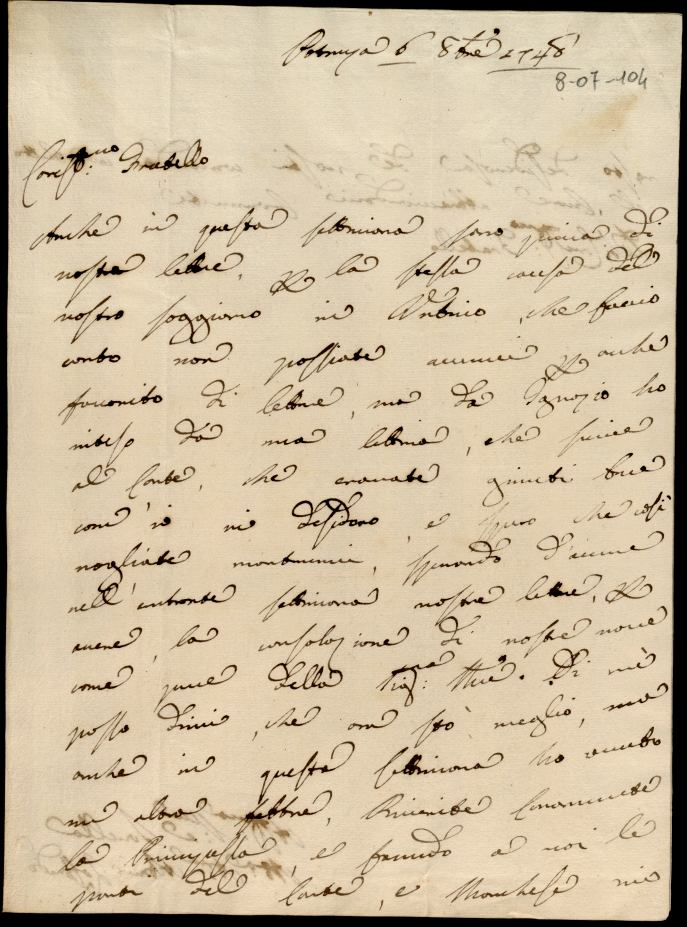 Perugia 6 8bre 1748
8-07-104
Cariss.mo Fratello
Anche in questa settimana sono privo di
vostre lettere, per la stessa causa del
vostro soggiorno in Urbino, che faccio
conto non possiate avermi per anche
favorito di lettere, ma da Ignazio ho
inteso da una lettera, che scrive
al Conte, che eravate giunti bene
com'io vi desidero, e spero che così
vogliate mantenervi, sperando d'avere
nell'entrante settimana vostre lettere, per
avere la consolazione di vostre nove
come pure della Sig.ra M.re. Di mè
posso dirvi, che ora stò meglio, ma
anche in questa settimana ho avuto
un altra febbre, Riverite caramente
la Principessa, e facendo a voi le
parti del Conte, e Marchese mio